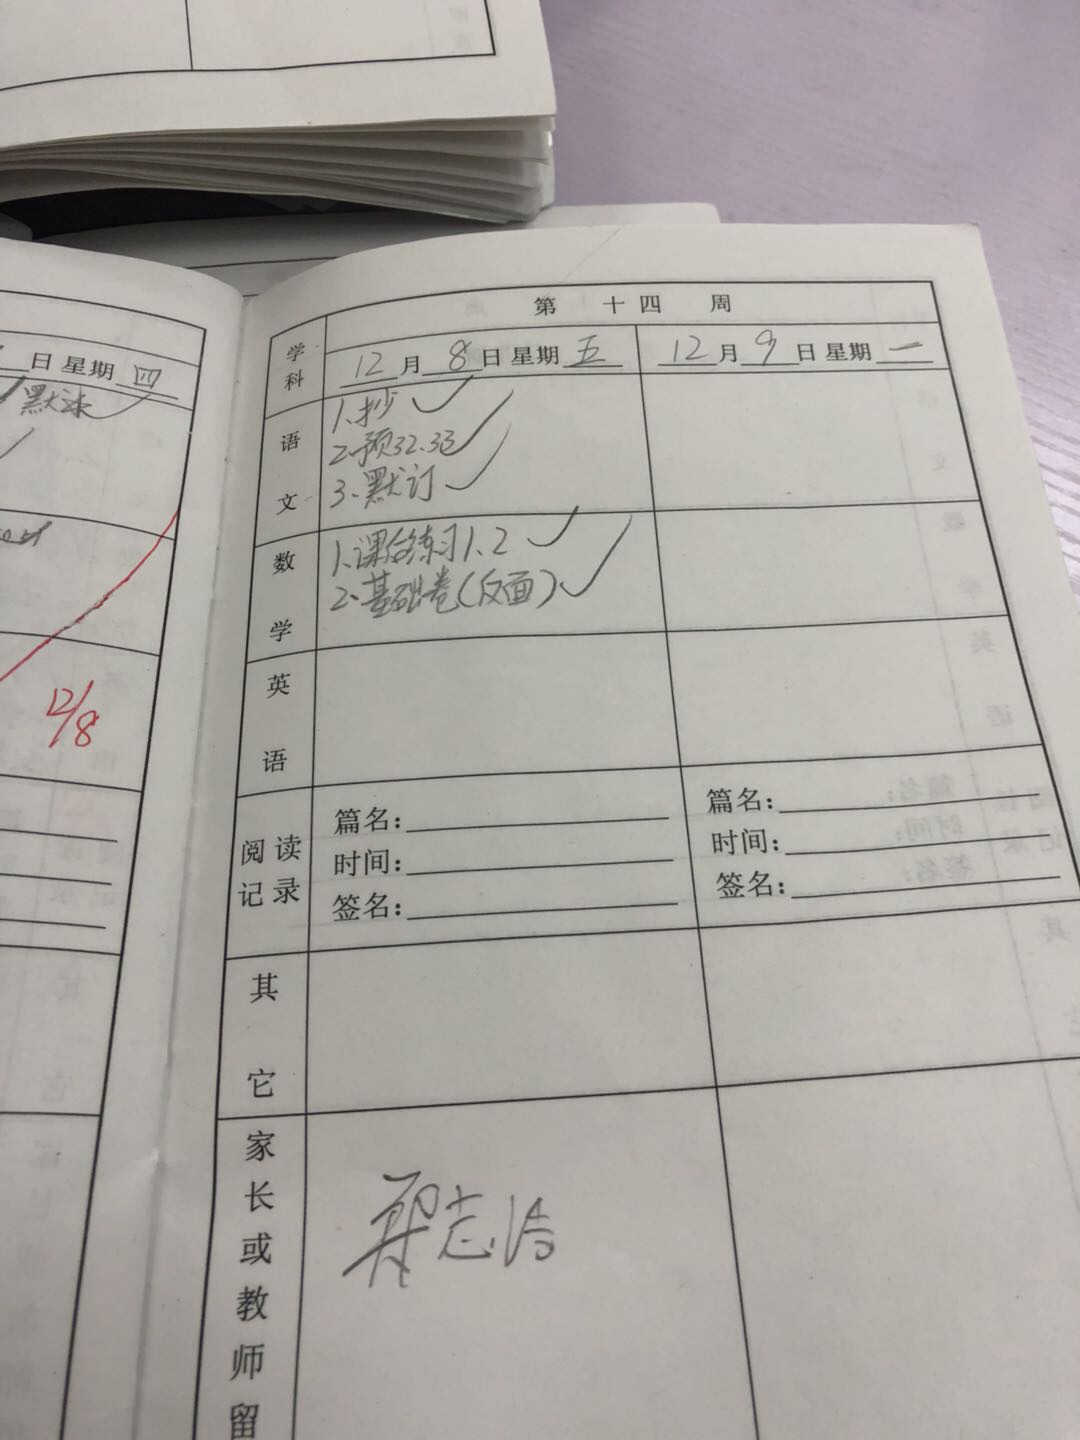 日 星期 四
默
12/8
第 十四 周
学科
12 月 8 日 星期 五
12 月 9 日 星期 一
语文
1.抄
2.预32.33
3.默订
数学
1.课后练习1.2
2.基础卷(反面)
英语
阅读记录
篇名:
时间:
签名:
篇名:
时间:
签名:
其它
家长或教师留
志浩